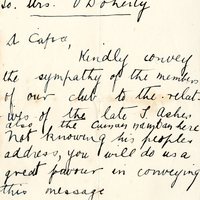 To. Mrs. O'Doherty
A Cara,
Kindly convey
the sympathy of the members
of our club to the relat-
ives of the late T. Ashe
also the Cumann na mban here
Not knowing his peoples
address, you will do us a
great favour in conveying
this message